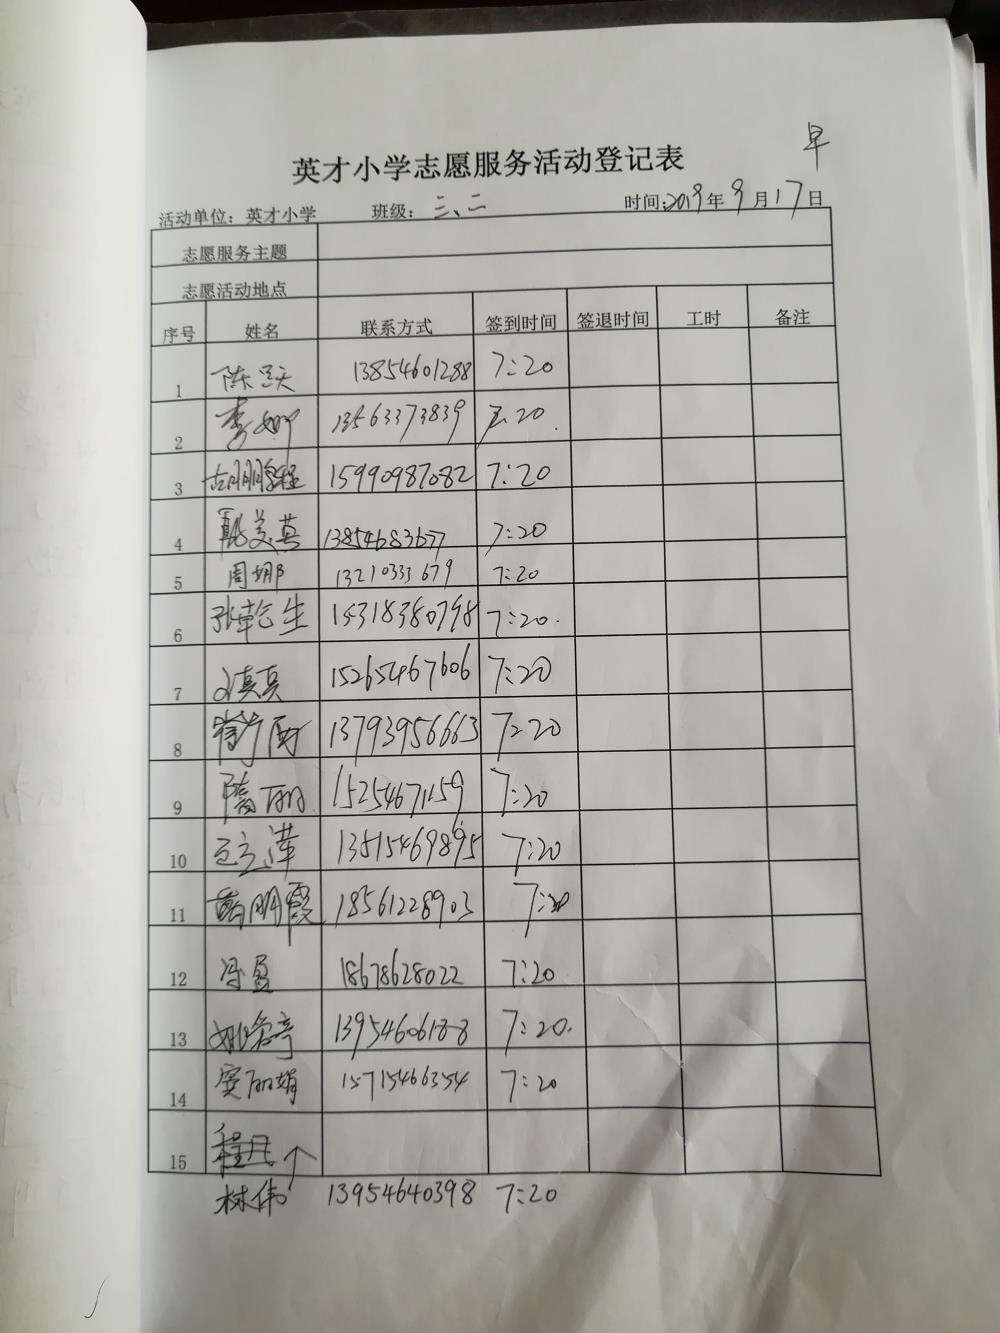 早
英才小学志愿服务活动登记表
活动单位：英才小学 班级：三、二 时间：2019年9月17日
志愿服务主题
志愿活动地点
序号 姓名 联系方式 签到时间 签退时间 工时 备注
1 陈 13854601288 7:20
2 李 13563373839 7:20.
3 15990987082 7:20
4 美英 13854683677 7:20
5 周娜 13210333679 7:20
6 张乾生 15318380798 7:20.
7 真真 15265467606 7:20
8 13793956663 7:20
9 隋丽丽 15254671159 7:20
10 13515469895 7:20
11 明霞 18561228903 7:20
12 冯盈 18678628022 7:20
13 姚 13954606188 7:20.
14 窦丽娟 15715466354 7:20
15 程凡
林伟 13954640398 7:20